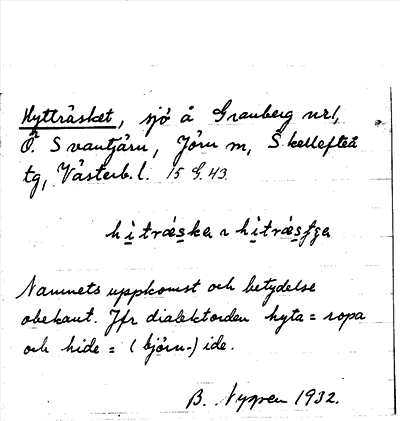 Hytträsket, sjö å Granberg nr 1,
Ö. Svantjärn, Jörn m, Skellefteå
tg, Västerb. l. 15 G. 43.
hi̱trǽs̱ka ~ hi̱trǽs̱ʃga
Namnets uppkomst och betydelse
obekant. Jfr dialektorden hyta = ropa
och hide = (björn-) ide.
B. Nygren 1932.